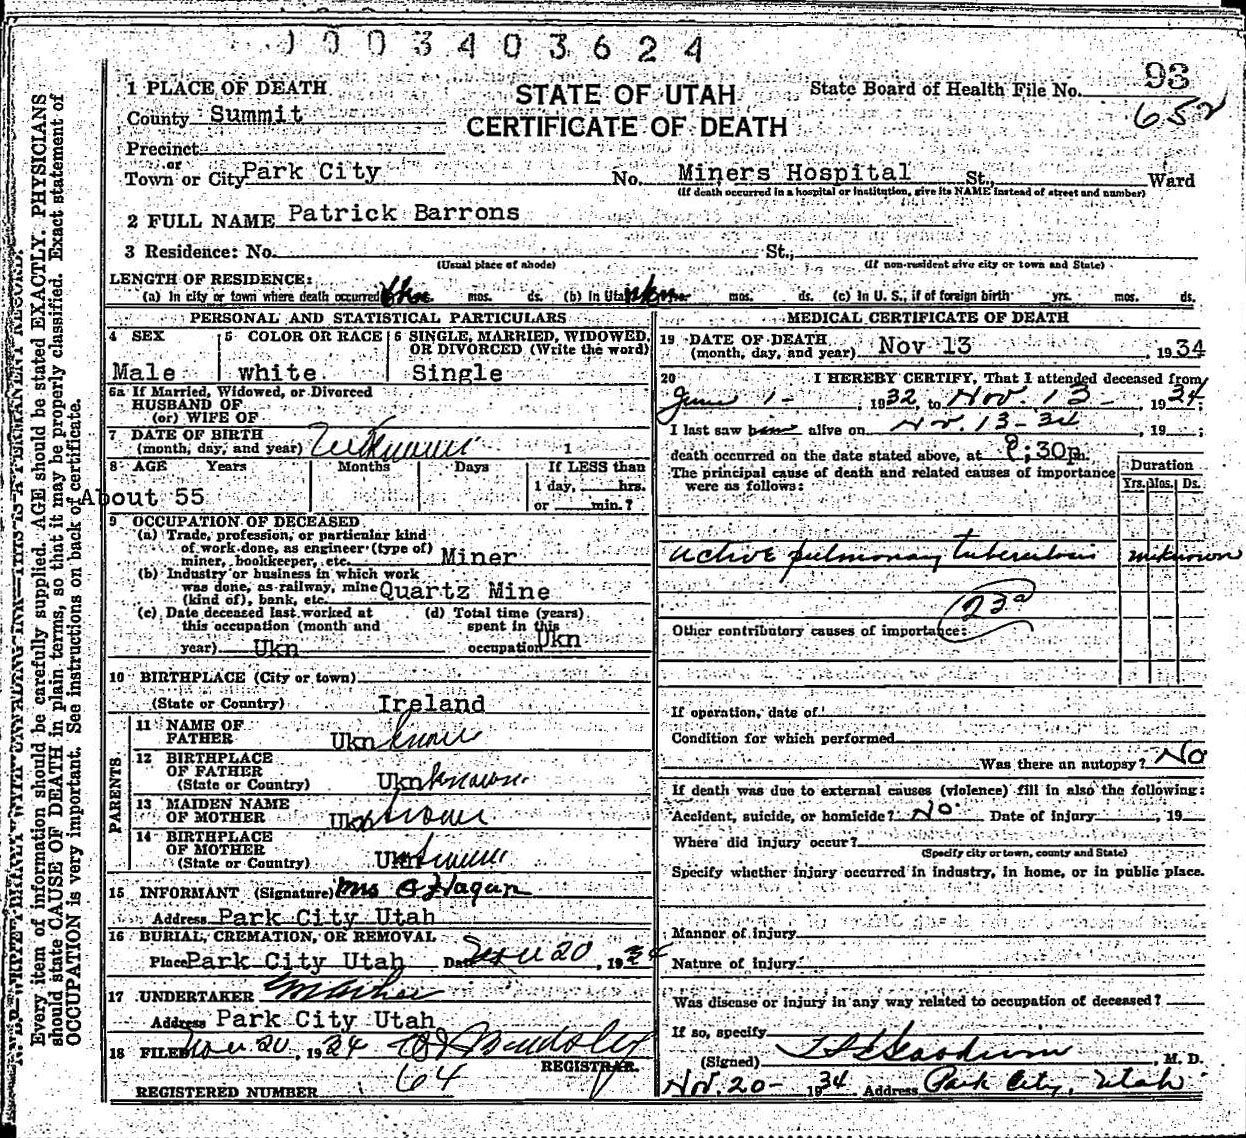 1003403624
1 PLACE OF DEATH
STATE OF UTAH
State Board of Health File No. 93
652
County Summit
CERTIFICATE OF DEATH
Precinct
or
Town or City Park City No. Miners Hospital St., Ward
(If death occurred in a hospital or institution, give its NAME instead of street and number)
2 FULL NAME Patrick Barrons
3 Residence: No. St.,
(Usual place of abode) (If non-resident give city or town and State)
LENGTH OF RESIDENCE:
(a) In city or town where death occurred mos. ds. (b) In Utah mos. ds. (c) In U. S., if of foreign birth yrs. mos. ds.
PERSONAL AND STATISTICAL PARTICULARS
4 SEX 5 COLOR OR RACE 6 SINGLE, MARRIED, WIDOWED,
OR DIVORCED (Write the word)
Male white Single
6a If Married, Widowed, or Divorced
HUSBAND OF
(or) WIFE OF
7 DATE OF BIRTH
(month, day, and year) Unknown 1
8 AGE Years Months Days If LESS than
1 day, hrs.
About 55
or min.?
9 OCCUPATION OF DECEASED
(a) Trade, profession, or particular kind
of work done, as engineer (type of)
miner, bookkeeper, etc. Miner
(b) Industry or business in which work
was done, as railway, mine
(kind of), bank, etc. Quartz Mine
(c) Date deceased last worked at (d) Total time (years)
this occupation (month and spent in this
year) Ukn occupation Ukn
10 BIRTHPLACE (City or town)
(State or Country) Ireland
PARENTS
11 NAME OF
FATHER Ukn
12 BIRTHPLACE
OF FATHER
(State or Country) Ukn known
13 MAIDEN NAME
OF MOTHER Ukn
14 BIRTHPLACE
OF MOTHER
(State or Country) Ukn
15 INFORMANT (Signature) Mrs
Address Park City Utah
16 BURIAL, CREMATION, OR REMOVAL
Place Park City Utah Date Nov 20, 1934
17 UNDERTAKER
Address Park City Utah
18 FILED Nov 20, 1934
REGISTRAR.
REGISTERED NUMBER 64
MEDICAL CERTIFICATE OF DEATH
19 DATE OF DEATH
(month, day, and year) Nov 13, 1934
20 I HEREBY CERTIFY, That I attended deceased from
June 1-, 1932, to Nov. 13-, 1934;
I last saw him alive on Nov. 13-34, 19 ;
death occurred on the date stated above, at 8:30p m.
The principal cause of death and related causes of importance
were as follows:
Duration
Yrs. Mos. Ds.
active pulmonary tuberculosis unknown
23a
Other contributory causes of importance:
If operation, date of
Condition for which performed
Was there an autopsy? No
If death was due to external causes (violence) fill in also the following:
Accident, suicide, or homicide? No Date of injury , 19
Where did injury occur?
(Specify city or town, county and State)
Specify whether injury occurred in industry, in home, or in public place.
Manner of injury
Nature of injury
Was disease or injury in any way related to occupation of deceased?
If so, specify
(Signed) , M. D.
Nov. 20- 1934 Address Park City, Utah
Every item of information should be carefully supplied. AGE should be stated EXACTLY. PHYSICIANS
should state CAUSE OF DEATH in plain terms, so that it may be properly classified. Exact statement of
OCCUPATION is very important. See instructions on back of certificate.